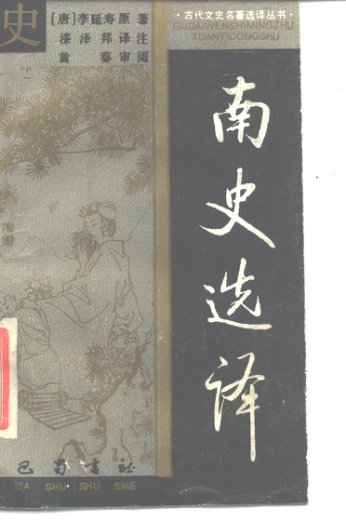 ·古代文史名著选译丛书·
GUDAIWENSHIMINGZHU
XUANYICONGSHU
[唐]李延寿原著
漆泽邦译注
黄葵审阅
史
南史选译
陶潜
巴蜀书社
BA SHU SHU SHE